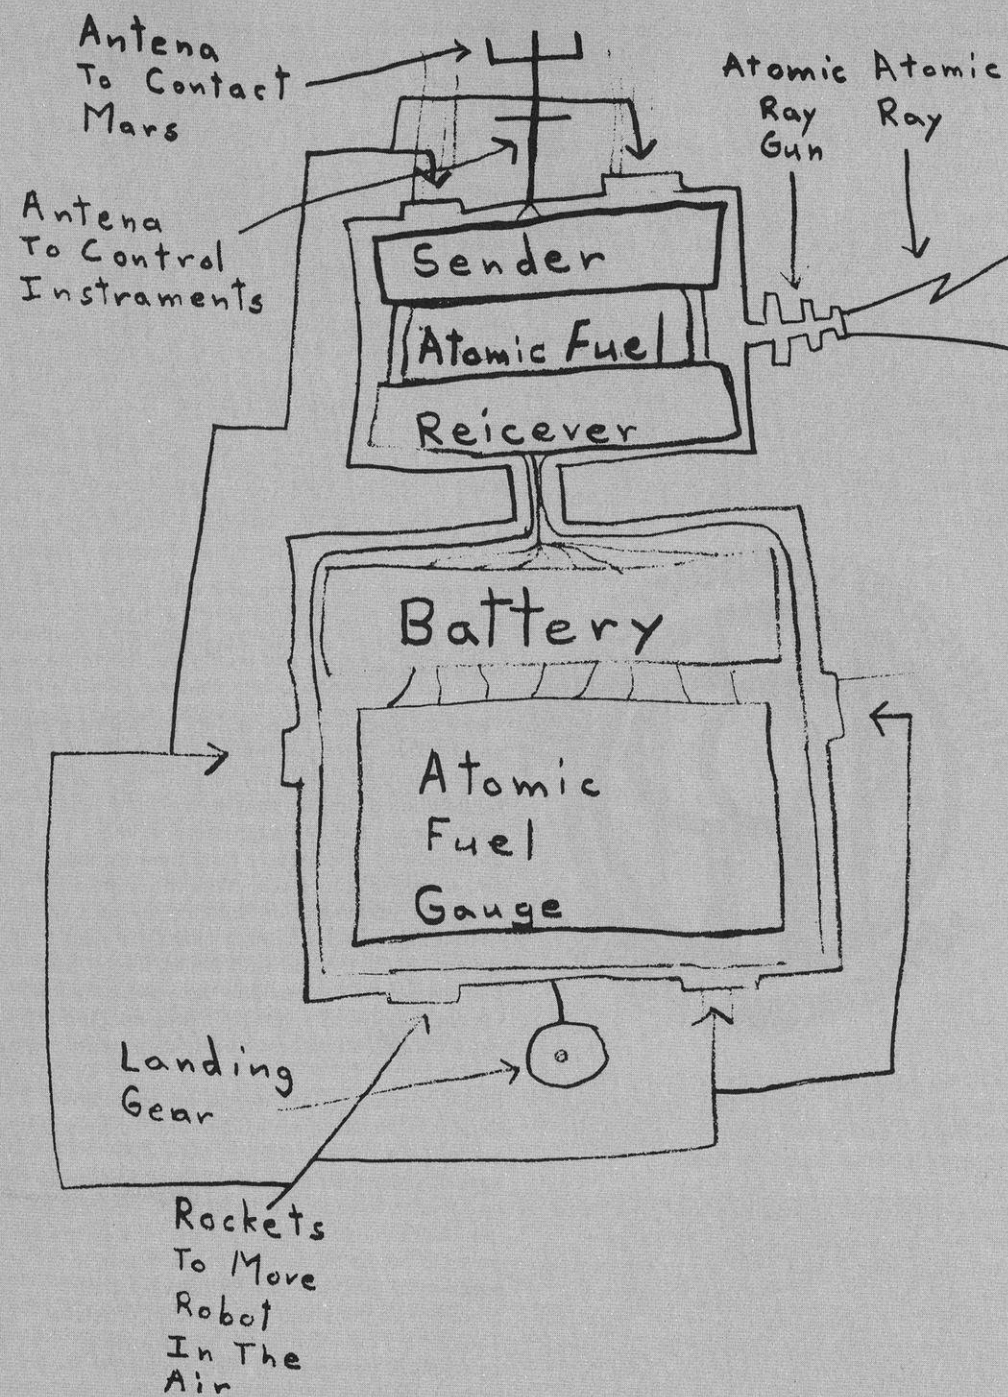 Antena
To Contact
Mars
Atomic
Ray
Gun
Atomic
Ray
Antena
To Control
Instraments
Sender
Atomic Fuel
Reicever
Battery
Atomic
Fuel
Gauge
Landing
Gear
Rockets
To Move
Robot
In The
Air